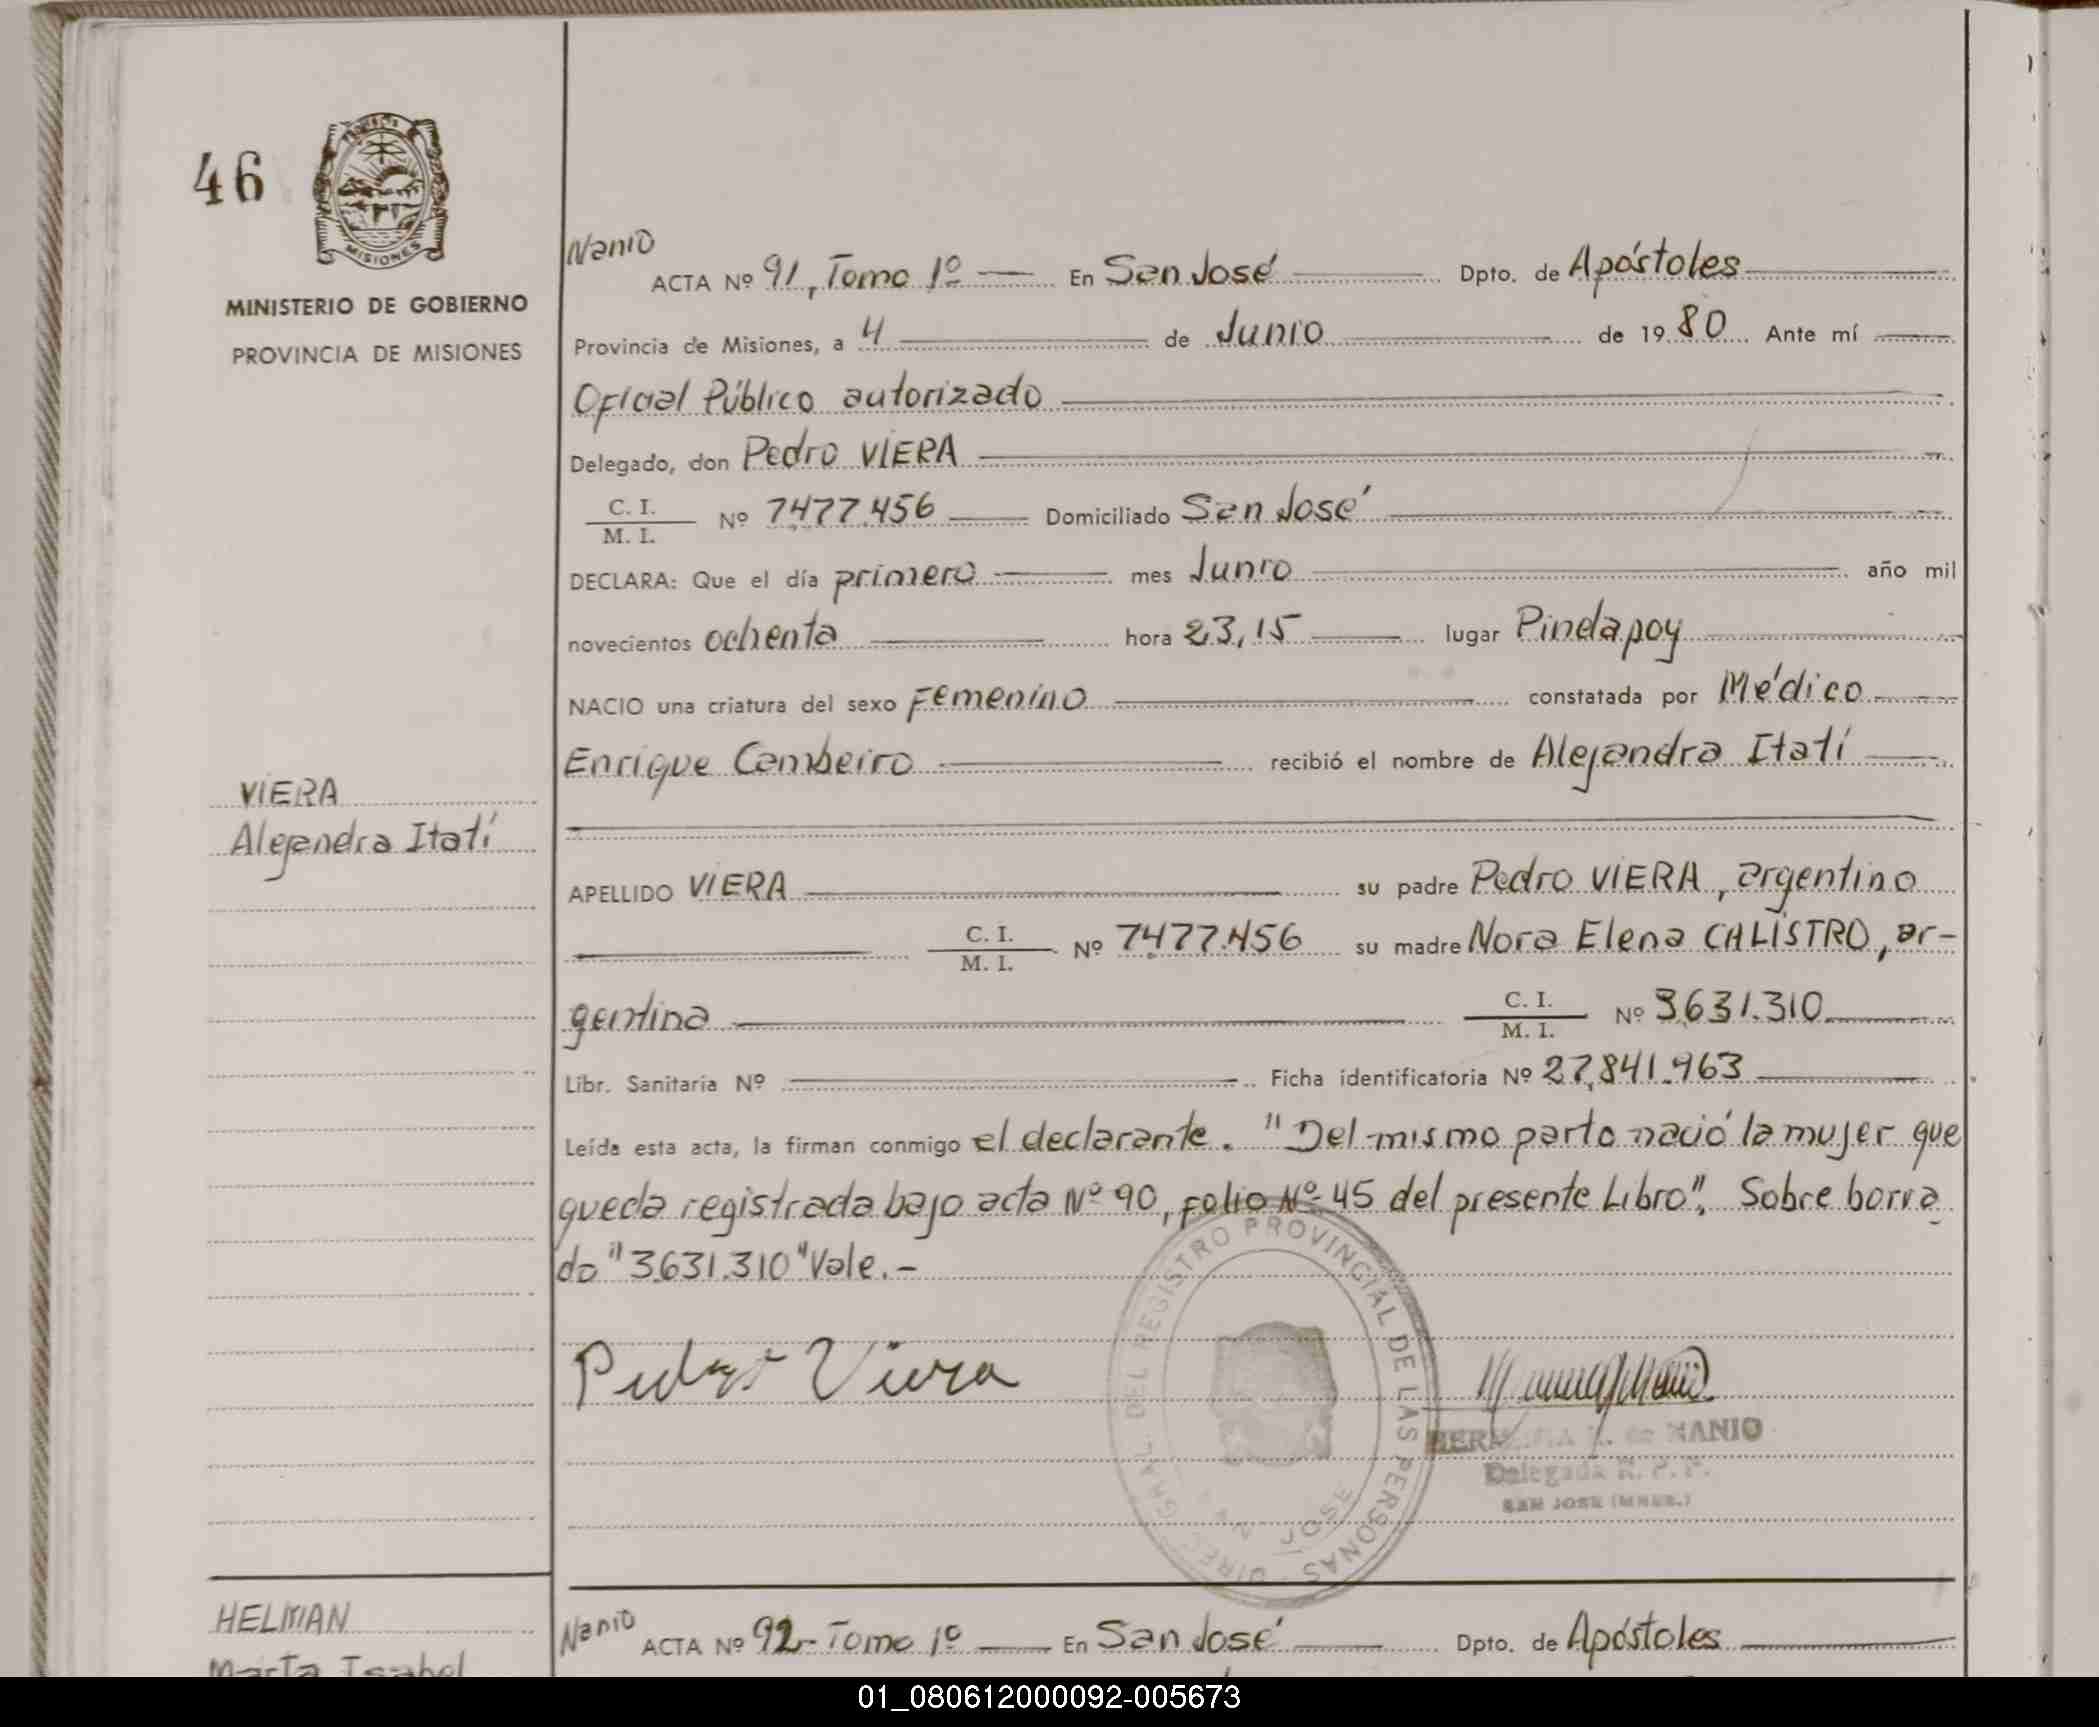 46
MISIONES
MINISTERIO DE GOBIERNO
PROVINCIA DE MISIONES
Nanio
ACTA Nº 91, Tomo 1º En San José Dpto. de Apóstoles
Provincia de Misiones, a 4 de Junio de 1980 Ante mí
Oficial Público autorizado
Delegado, don Pedro VIERA
C. I.
M. I. Nº 7477.456 Domiciliado San José
DECLARA: Que el día primero mes Junio año mil
novecientos ochenta hora 23,15 lugar Pindapoy
NACIO una criatura del sexo Femenino constatada por Médico
Enrique Cambeiro recibió el nombre de Alejandra Itatí
VIERA
Alejandra Itatí
APELLIDO VIERA su padre Pedro VIERA, argentino
C. I.
M. I. Nº 7477.456 su madre Nora Elena CALISTRO, ar-
gentina C. I.
M. I. Nº 3.631.310
Libr. Sanitaria Nº Ficha identificatoria Nº 27.841.963
Leída esta acta, la firman conmigo el declarante. "Del mismo parto nació la mujer que
queda registrada bajo acta Nº 90, folio Nº 45 del presente Libro". Sobre borra
do "3.631.310" Vale.-
Pedro Viera
DIREC. GRAL. DEL REGISTRO PROVINCIAL DE LAS PERSONAS
SAN JOSE
de NANIO
Delegada R. P. P.
SAN JOSE (MNES.)
HELMAN
Marta Isabel
Nanio
ACTA Nº 92- Tomo 1º En San José Dpto. de Apóstoles
01_080612000092-005673